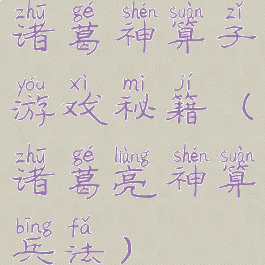 zhū gé shén suàn zǐ
诸葛神算子
yóu xì mì jí
游戏秘籍（
zhū gé liàng shén suàn
诸葛亮神算
bīng fǎ
兵法）